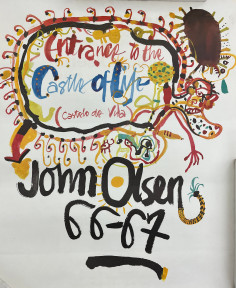 Entrance to the
Castle of Life
(Castelo de Vida
John Olsen
66-67